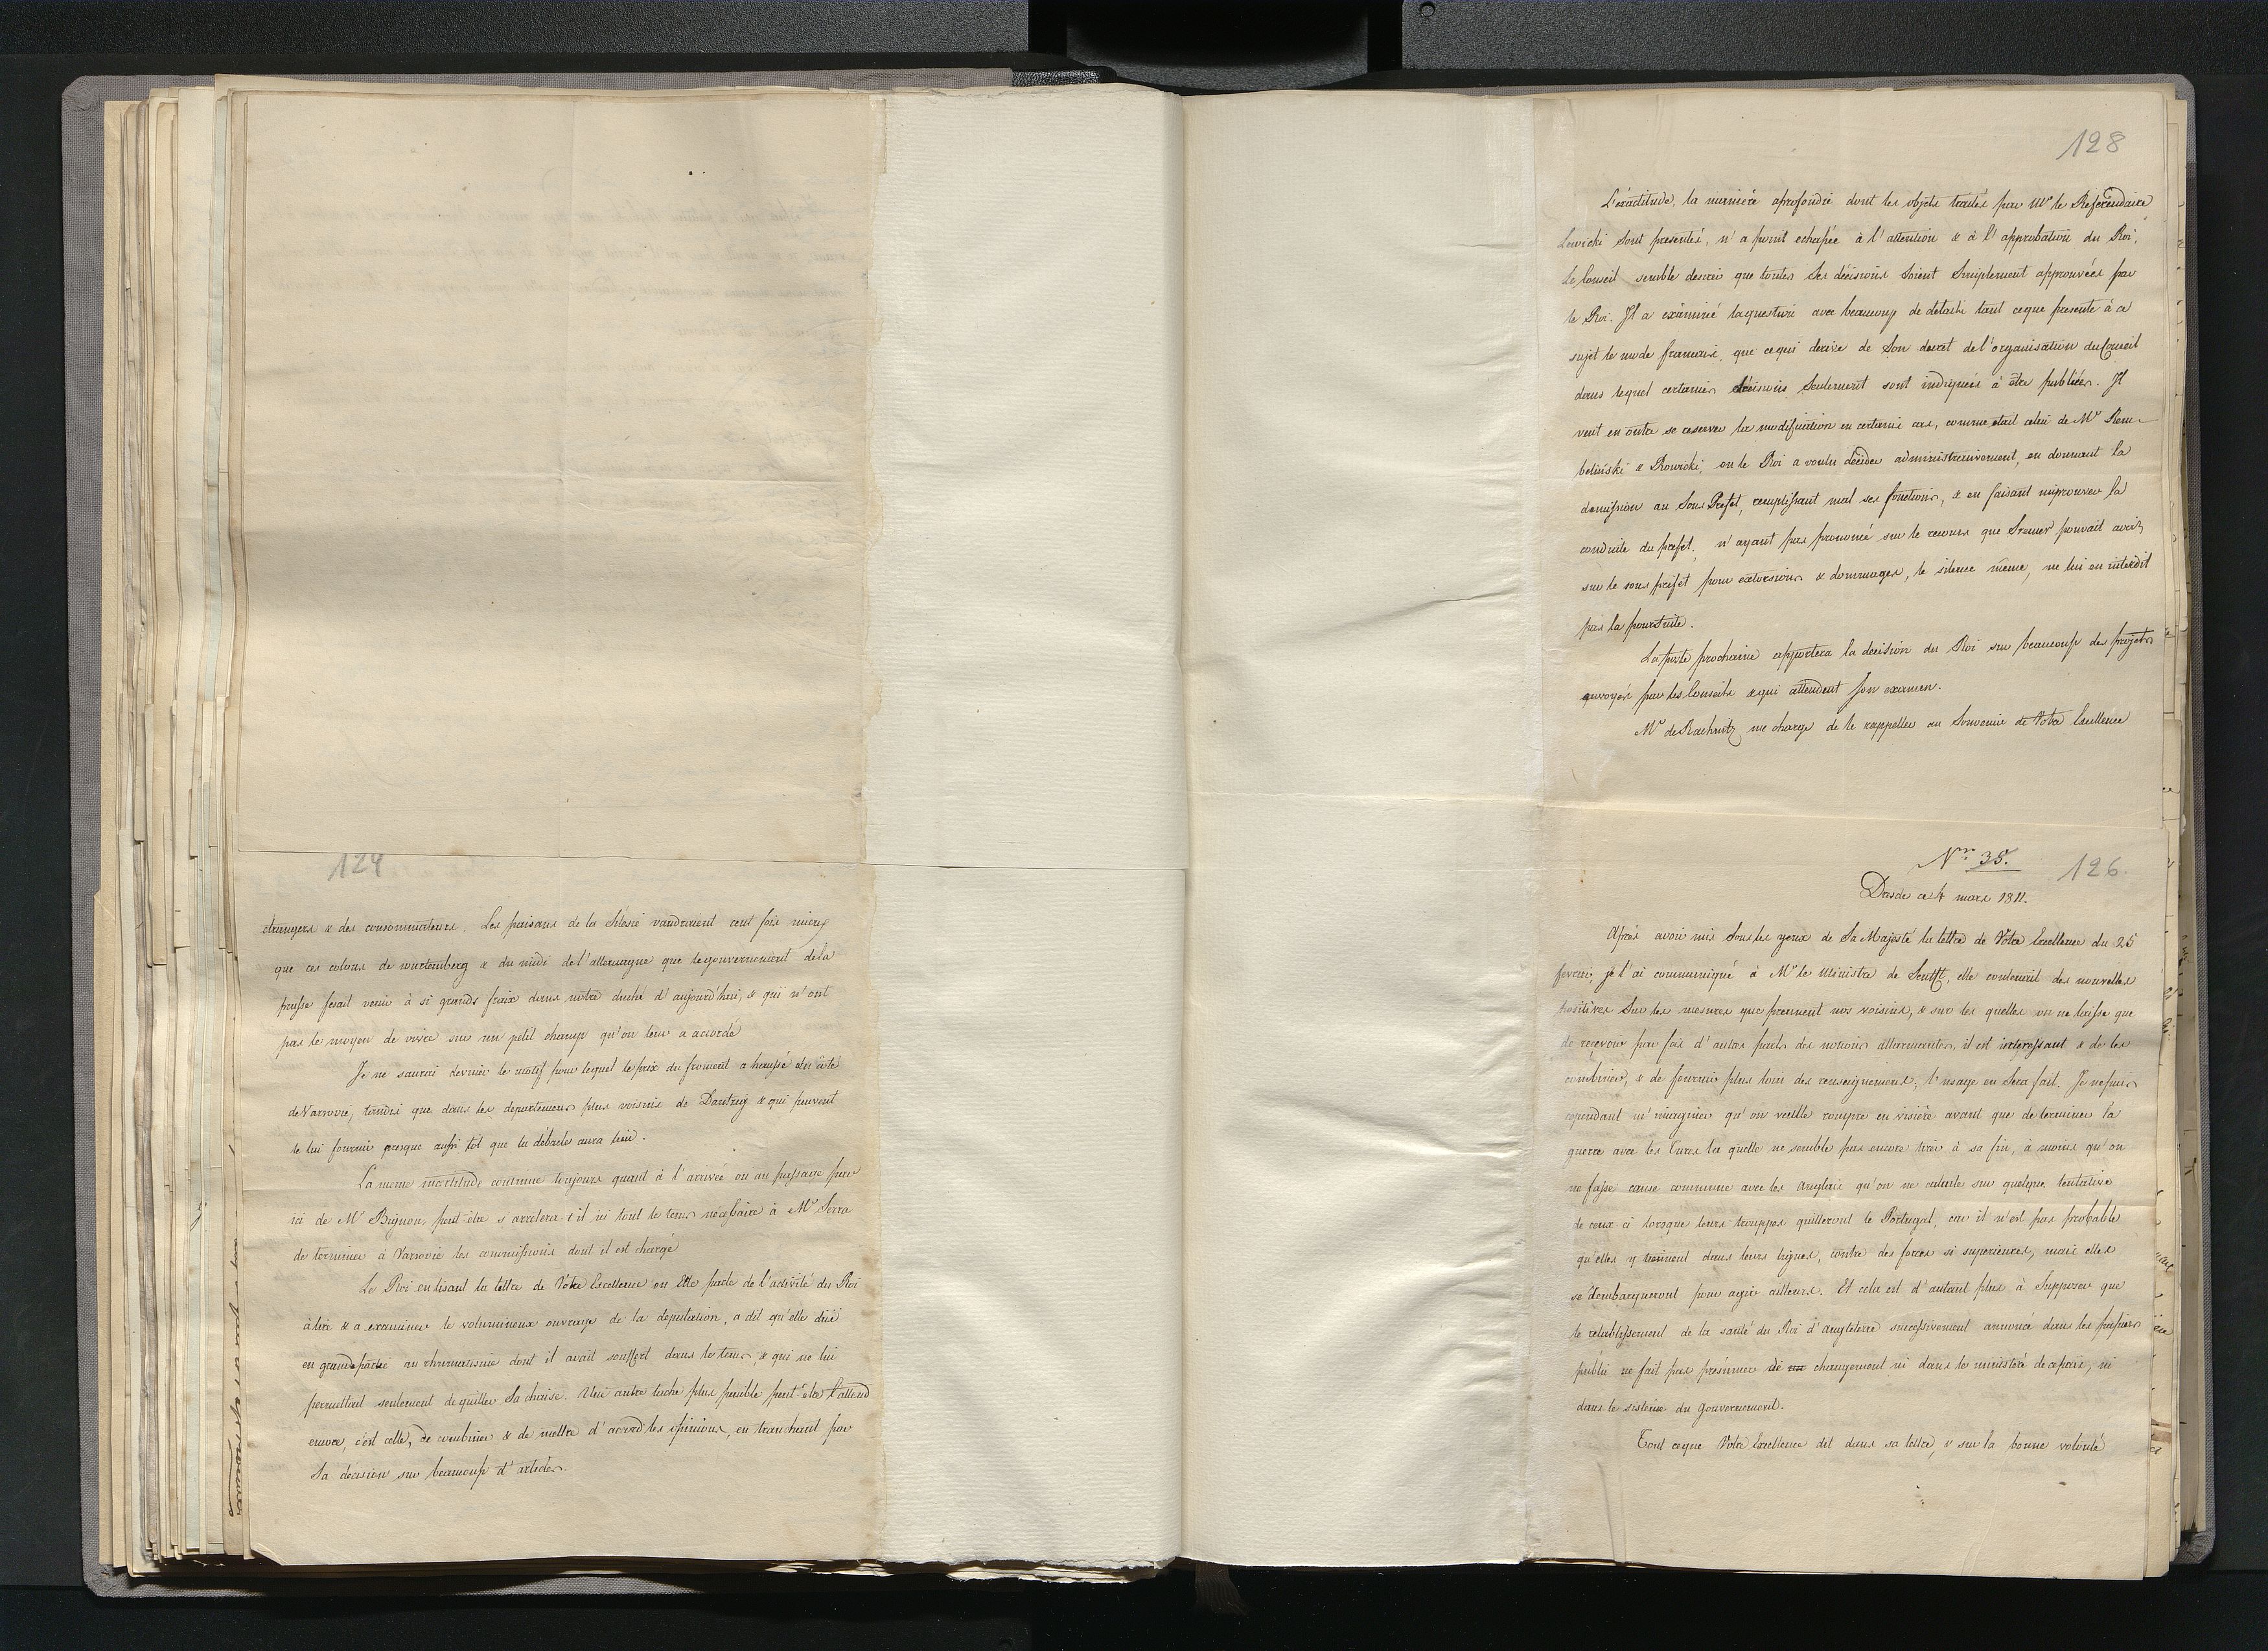 124
étrangers & des consommateurs. Les paisans de la Silesie vaudraient cent fois mieux
que ces colons de wurtemberg & du midi de l'allemagne que le gouvernement de la
prusse fesait venir à si grands fraix dans notre duché d'aujourd'hui, & qui n'ont
pas le moyen de vivre sur un petit champ qu'on leur a accordé
Je ne saurai deviner le motif pour lequel le prix du froment a haussé du coté
de Varsovie, tandis que dans les departemens plus voisins de Dantzig & qui peuvent
le lui fournir presque aussi tôt que la débacle aura lieu.
La meme incertitude continue toujours quant à l'arrivée ou au passage par
ici de Mr Bignon, peut être s'arretera t'il ici tout le tems nécessaire à Mr Serra
de terminer à Varsovie les commissions dont il est chargé
Le Roi en lisant la lettre de Votre Excellence où Elle parle de l'activité du Roi
à lire & a examiner le volumineux ouvrage de la deputation, a dit qu'elle etait due
en grande partie au rhumatisme dont il avait souffert dans le tems, & qui ne lui
permettait seulement de quitter Sa chaise. Une autre tache plus penible peut être l'attend
encore, c'est celle, de combiner & de mettre d'accord les opinions, en tranchant par
Sa décision sur beaucoup d'articles.
128
L'exactitude, la maniére aprofondie dont les objets traités par Mr le Referendaire
Lewicki sont presentés, n'a point echapée à l'attention & à l'approbation du Roi.
Le Conseil semble desirer que toutes Ses décisions soient Simplement approuvées par
le Roi. Il a examiné la question avec beaucoup de details tant ce que presente à ce
sujet le mode francais, que ce qui derive de Son decret de l'organisation du Conseil
dans lequel certaines décisions Seulement sont indiquées à être publiées. Il
veut en outre se reserver la modification en certains cas, comme etait celui de Mr Rem-
belinski & Rowicki, ou le Roi a voulu décider administrativement, en donnant la
demission au Sous Prefet, remplissant mal ses fonctions, & en faisant improuver la
conduite du prefet. n'ayant pas prononcé sur le recours que pouvait avoir
sur le sous prefet pour extorsions & dommages, le silence même, ne lui en interdit
pas la poursuite.
La poste prochaine apportera la decision du Roi sur beaucoup des projets
envoyés par les Conseils & qui attendent Son examen.
Mr de Rachnitz me charge de le rappeller au Souvenir de Votre Excellence
Nro 35.
126
Dresde ce 4 mars 1811.
Aprés avoir mis Sous les yeux de Sa Majesté la lettre de Votre Excellence du 25
fevrier, je l'ai communiqué à Mr le Ministre de Senfft, elle contenait des nouvelles
positives Sur les mesures que prennent nos voisins, & sur les quelles on ne laisse que
de recevoir par fois d'autres parts des notions allarmantes, il est interessant & de les
combiner, & de fournir plus loin des renseignemens; l'usage en Sera fait. Je ne puis
cependant m'imaginer qu'on veuille rompre en visière avant que de terminer la
guerre avec les Turcs la quelle ne semble pas encore tirer à sa fin, à moins qu'on
ne fasse cause commune avec les Anglais qu'on ne calcule sur quelque tentative
de ceux ci lorsque leurs trouppes quitteront le Portugal, car il n'est pas probable
qu'elles y tiennent dans leurs lignes, contre des forces si superieures, mais elles
se rembarqueront pour agir ailleurs. Et cela est d'autant plus à Supposer que
le retablissement de la santé du Roi d'Angleterre successivement annoncé dans les papiers
publics ne fait pas présumer de changement ni dans le ministère de ce pais, ni
dans le sistème du gouvernement.
Tout ce que Votre Excellence dit dans sa lettre, & sur la bonne volonté